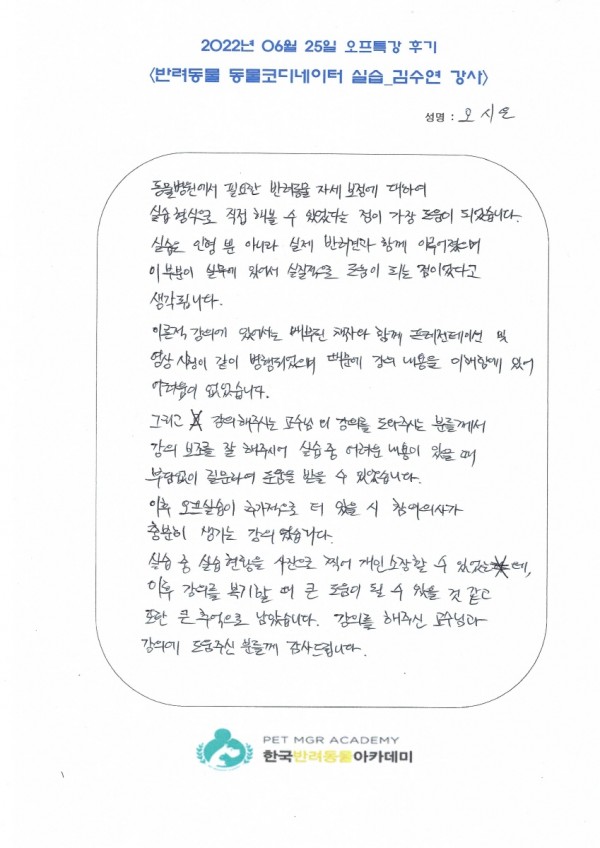 2022년 06월 25일 오프특강 후기
<반려동물 동물코디네이터 실습_김수연 강사>
성명 : 오시은
동물병원에서 필요한 반려동물 자세 보정에 대하여
실습 형식으로 직접 해볼 수 있었다는 점이 가장 도움이 되었습니다.
실습은 인형 뿐 아니라 실제 반려견과 함께 이루어졌으며
이 부분이 실무에 있어서 실질적으로 도움이 되는 점이었다고
생각됩니다.
이론적 강의에 있어서는 배부된 책자와 함께 프레젠테이션 및
영상 시청이 같이 병행되었으며 때문에 강의 내용을 이해함에 있어
어려움이 없었습니다.
그리고 강의해주시는 교수님 외 강의를 도와주시는 분들께서
강의 보조를 잘 해주시어 실습 중 어려운 내용이 있을 때
부담없이 질문하여 도움을 받을 수 있었습니다.
이후 오프실습이 추가적으로 더 있을 시 참여의사가
충분히 생기는 강의였습니다.
실습 중 실습 현황을 사진으로 찍어 개인소장할 수 있었는데,
이후 강의를 복기할 때 큰 도움이 될 수 있을 것 같고
또한 큰 추억으로 남았습니다. 강의를 해주신 교수님과
강의에 도움주신 분들께 감사드립니다.
PET MGR ACADEMY
한국반려동물아카데미